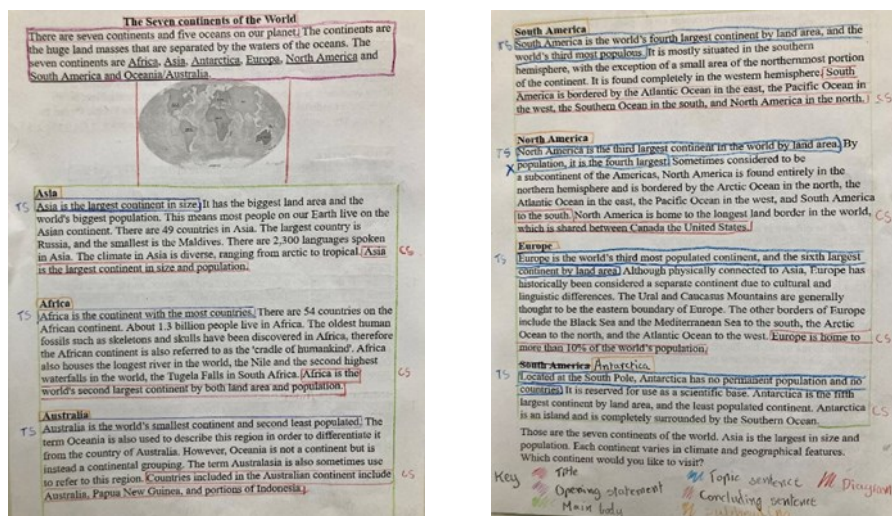 The Seven continents of the World
There are seven continents and five oceans on our planet. The continents are
the huge land masses that are separated by the waters of the oceans. The
seven continents are Africa, Asia, Antarctica, Europa, North America and
South America and Oceania/Australia.
Asia
TS Asia is the largest continent in size. It has the biggest land area and the
world's biggest population. This means most people on our Earth live on the
Asian continent. There are 49 countries in Asia. The largest country is
Russia, and the smallest is the Maldives. There are 2,300 languages spoken
in Asia. The climate in Asia is diverse, ranging from arctic to tropical. Asia CS
is the largest continent in size and population.
Africa
TS Africa is the continent with the most countries. There are 54 countries on the
African continent. About 1.3 billion people live in Africa. The oldest human
fossils such as skeletons and skulls have been discovered in Africa, therefore
the African continent is also referred to as the 'cradle of humankind'. Africa
also houses the longest river in the world, the Nile and the second highest
waterfalls in the world, the Tugela Falls in South Africa. Africa is the CS
world's second largest continent by both land area and population.
Australia
TS Australia is the world's smallest continent and second least populated. The
term Oceania is also used to describe this region in order to differentiate it
from the country of Australia. However, Oceania is not a continent but is
instead a continental grouping. The term Australasia is also sometimes use
to refer to this region. Countries included in the Australian continent include CS
Australia, Papua New Guinea, and portions of Indonesia.
South America
TS South America is the world's fourth largest continent by land area, and the
world's third most populous. It is mostly situated in the southern
hemisphere, with the exception of a small area of the northernmost portion
of the continent. It is found completely in the western hemisphere. South
America is bordered by the Atlantic Ocean in the east, the Pacific Ocean in CS
the west, the Southern Ocean in the south, and North America in the north.
North America
TS North America is the third largest continent in the world by land area. By
X population, it is the fourth largest. Sometimes considered to be
a subcontinent of the Americas, North America is found entirely in the
northern hemisphere and is bordered by the Arctic Ocean in the north, the
Atlantic Ocean in the east, the Pacific Ocean in the west, and South America
to the south. North America is home to the longest land border in the world, CS
which is shared between Canada the United States.
Europe
TS Europe is the world's third most populated continent, and the sixth largest
continent by land area. Although physically connected to Asia, Europe has
historically been considered a separate continent due to cultural and
linguistic differences. The Ural and Caucasus Mountains are generally
thought to be the eastern boundary of Europe. The other borders of Europe
include the Black Sea and the Mediterranean Sea to the south, the Arctic
Ocean to the north, and the Atlantic Ocean to the west. Europe is home to CS
more than 10% of the world's population.
South America Antarctica
TS Located at the South Pole, Antarctica has no permanent population and no
countries. It is reserved for use as a scientific base. Antarctica is the fifth
largest continent by land area, and the least populated continent. Antarctica CS
is an island and is completely surrounded by the Southern Ocean.
Those are the seven continents of the world. Asia is the largest in size and
population. Each continent varies in climate and geographical features.
Which continent would you like to visit?
Key Title Topic sentence Diagram
Opening statement Concluding sentence
Main body